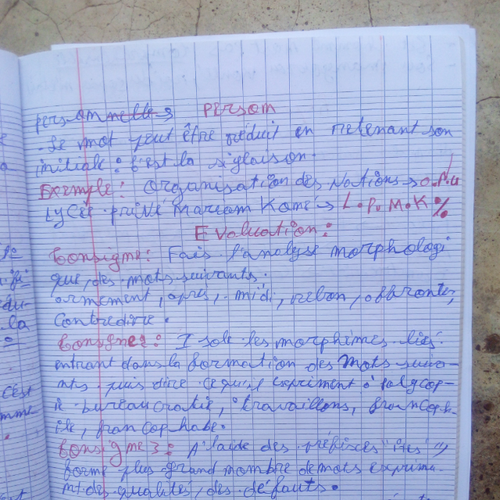 personnelles PERSOM
- Le mot peut être réduit en retenant son
initiale : c'est la siglaison.
Exemple : Organisation des Nations → O.Nu
Lycée privé Mariam Komé → L.P.M.K
Evaluation :
Consigne : Fais l'analyse morphologi
que des mots suivants.
armement, après-midi, rebon, affronter,
contredire.
Consigne 2 : Isole les morphèmes liés
entrant dans la formation des Mots suiva-
nts puis dire ce qu'il expriment : polycop-
ie bureaucratie, travaillons, francoph-
ile, francophobe.
Consigne 3 : A l'aide des préfixes
forme plus grand nombre de mots exprima
nt des qualités, des défauts.